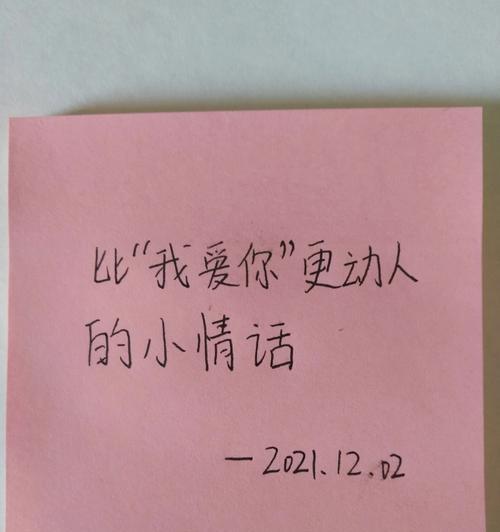 比“我爱你”更动人
的小情话
—2021.12.02